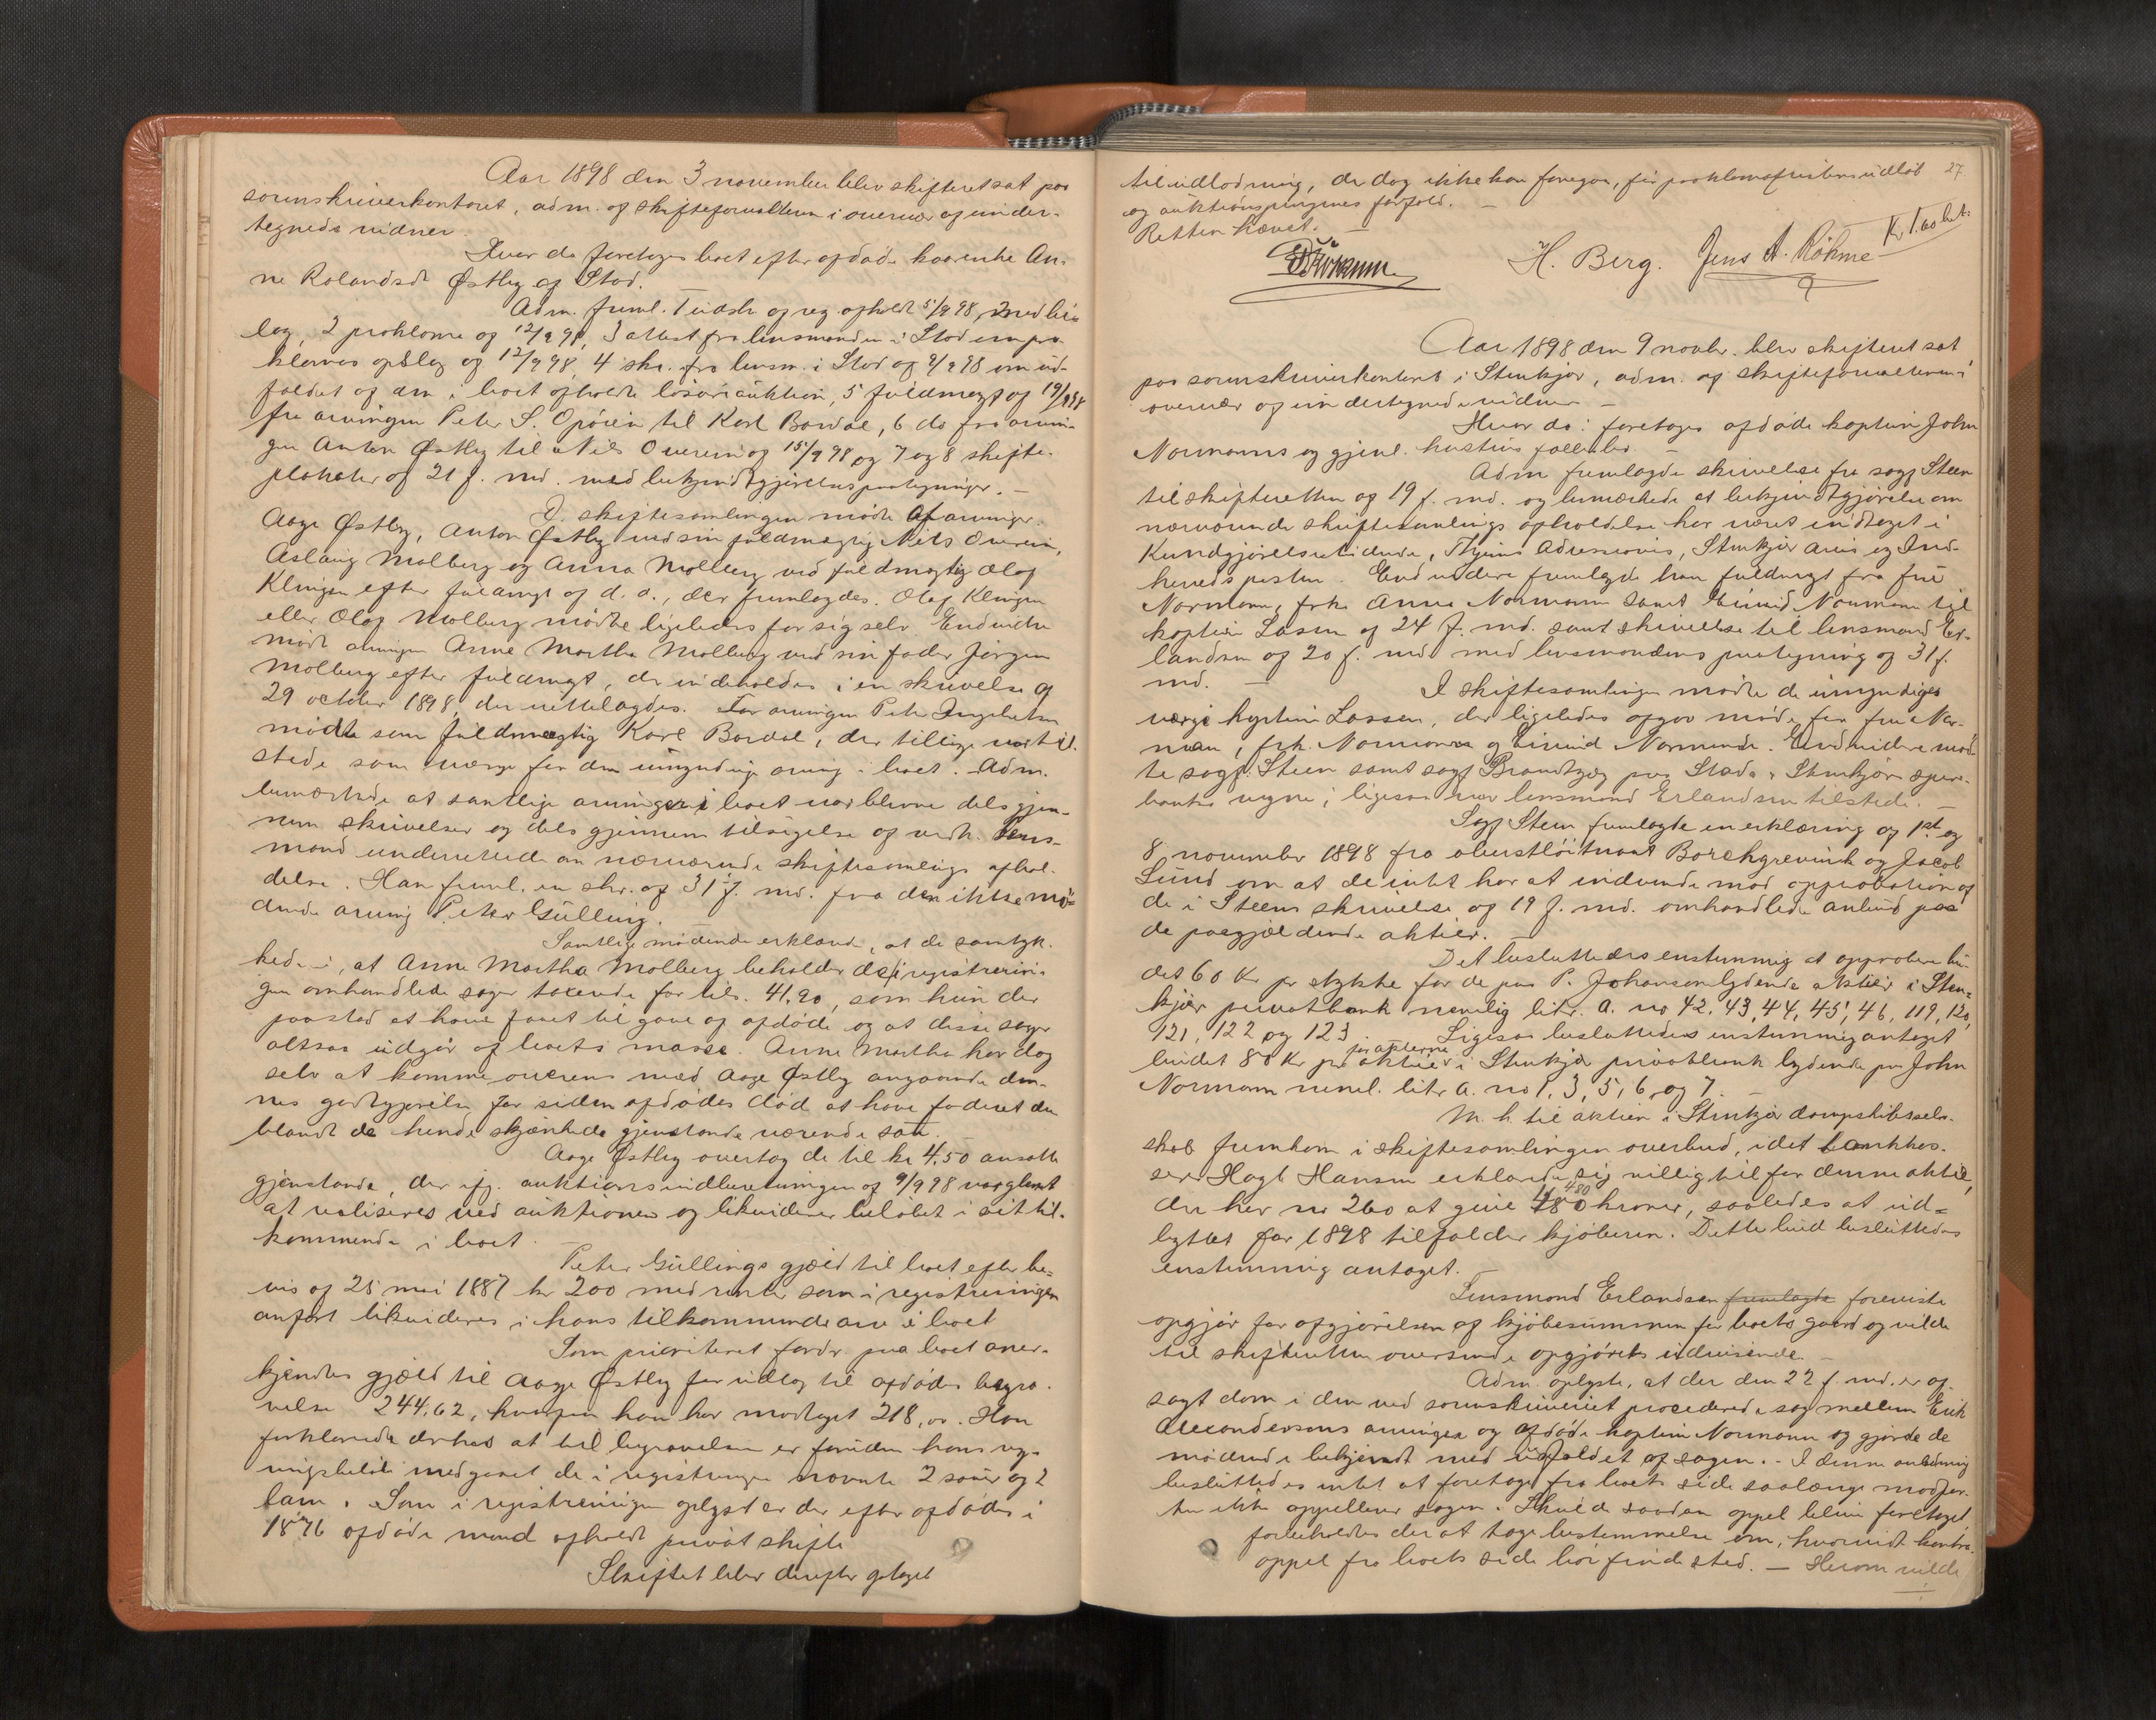 Aar 1898 den 3 november blev skifteret sat paa
sorenskriverkontoret, adm. af skifteforvalteren i overvær af under-
tegnede vidner.
Hvor da foretages boet efter afdøde kaarenke An-
ne Rolandsdt Østby af Stod.
Adm. freml. 1 udskr af reg. afholdt 5/9 98, med bi-
lag, 2 proklama af 12/9 98, 3 attest fra lensmanden i Stod om pro-
klamas opslag af 12/9 98, 4 skr. fra lensm. i Stod af 9/9 98 om ud-
faldet af den i boet afholdte løsøreauktion, 5 fuldmagt af 19/9 98
fra arvingen Peter S. Opøien til Karl Bardal, 6 do fra arvin-
gen Anton Østby til Nils Overein af 15/9 98 og 7 og 8 skifte-
plakater af 21 f. md. med bekjendtgjørelsespaategninger. —
I skiftesamlingen mødte af arvinger.
Aage Østby, Anton Østby ved sin fuldmægtig Nils Overein,
Aslaug Molberg og Anna Molberg ved fuldmægtig Olaf
Klingen efter fuldmagt af d. d., der fremlagdes. Olaf Klingen
eller Olaf Molberg mødte ligeledes for sig selv. Endvidere
mødte arvingen Anne Martha Molberg ved sin fader Jørgen
Molberg efter fuldmagt, der indeholdes i en skrivelse af
29 october 1898 der rettelagdes. For arvingen Peter
mødte som fuldmægtig Karl Bardal, der tillige var til-
stede som værge for den umyndige arving i boet. Adm.
bemærkede at samtlige arvinger i boet var blevne dels gjen-
nem skrivelser og dels gjennem tilsigelse af vedk. lens-
mand underrettede om nærværende skiftesamlings afhol-
delse. Han freml. en skr. af 31 f. md. fra den ikke mø-
dende arving Peter Gulling.
Samtlige mødende erklærede, at de samtyk-
kede i, at Anne Martha Molberg beholder de i registrerin-
gen omhandlede sager taxerede for tils. 41,90, som hun der
paastod at have faaet til gave af afdøde og at disse sager
altsaa udgaar af boets masse. Anne Martha har dog
selv at komme overens med Aage Østby angaaende den-
nes godtgjørelse for siden afdødes død at have foderet den
blandt de hende skjænkede gjenstande værende sau.
Aage Østby overtog de til kr 4,50 ansatte
gjenstande, der ifg. auktionsindberetningen af 9/9 98 var glemt
at realiseres ved auktionen og likviderer beløbet i sit til-
kommende i boet.
Peter Gullings gjæld til boet efter be-
vis af 25 mai 1887 kr 200 med renter som i registreringen
anført likvideres i hans tilkommende arv i boet
Som prioriteret fordr. paa boet aner-
kjendes gjæld til Aage Østby for udlæg til afdødes begra-
velse 244,62, hvorpaa han har modtaget 218,00. Han
forklarede derhos at til begravelsen er foruden hans reg-
ningsbeløb medgaaet de i registreringen nævnte 2 sauer og 2
lam. Som i registreringen oplyst er der efter afdødes i
1876 afdøde mand afholdt privat skifte
Skiftet blev derefter optaget
27.
til udlodning, der dog ikke kan foregaa, før proklamafristens udløb
og auktionspengenes forfald. —
Retten hævet. —
H. Berg. Jens A. Røhme
Kr 1.60 bet.
Aar 1898 den 9 novbr. blev skifteret sat
paa sorenskriverkontoret i Stenkjær, adm. af skifteforvalteren i
overvær af undertegnede vidner —
Hvor da: foretages afdøde kaptein John
Normanns og gjenl. hustrus fællesbo —
Adm fremlagde skrivelse fra sagf Steen
til skifteretten af 19 f. md. og bemærkede at bekjendtgjørelse om
nærværende skiftesamlings afholdelse har været indtaget i
Kundgjørelsestidende, Thjems Adresseavis, Stenkjær avis og Ind-
herredsposten. Endvidere fremlagde han fuldmagt fra fru
Normann, frk. Anna Normann samt Eivind Normann til
kaptein Lasson af 24 f. md. samt skrivelse til lensmand Er-
landsen af 20 f. md med lensmandens paategning af 31 f.
md. —
I skiftesamlingen mødte de umyndiges
værge kaptein Lassen, der ligeledes afgav møde for fru Nor-
man, frk. Normann og Eivind Normann. Endvidere mød-
te sagf. Steen samt sagf Brandtzæg paa Stods & Stenkjær spare-
banks vegne; ligesaa var lensmand Erlandsen tilstede. —
Sagf Steen fremlagde en erklæring af 1st og
8 november 1898 fra oberstløitnant Borchgrevink og Jacob
Lund om at de intet har at indvende mod approbation af
de i Steens skrivelse af 19 f. md. omhandlede anbud paa
de paagjældende aktier. —
Det besluttedes enstemmig at approbere bu-
det 60 Kr pr stykke for de paa P. Johansen lydende aktier i Sten-
kjær privatbank nemlig litr. a. no 42, 43, 44, 45, 46, 119, 120,
121, 122 og 123. Ligesaa besluttedes enstemmig antaget
budet 88 Kr pr aktie for aktierne i Stenkjær privatbank lydende paa John
Normann neml. litr. a. no 1, 3, 5, 6, og 7. —
M. h. til aktien i Stenkjær dampskibssels-
skab fremkom i skiftesamlingen overbud, idet bankkas-
serer Hagb Hansen erklærede sig villig til for denne aktie,
der har no 260 at give 480 kroner, saaledes at ud-
byttet for 1898 tilfalder kjøberen. Dette bud besluttedes
enstemmig antaget. —
Lensmand Erlandsen fremlagde foreviste
opgjør for afgjørelsen af kjøbesummen for boets gaard og vilde
til skifteretten oversende opgjørets udvisende. —
Adm. oplyste, at der den 22 f. md. er af-
sagt dom i den ved sorenskriveriet procederede sag mellem Erik
Alexandersens arvinger og afdøde kaptein Normann og gjorde de
mødende bekjendt med udfaldet af sagen. - I denne anledning
besluttedes intet at foretage fra boets side saalænge modpar-
ten ikke appellerer sagen. Skulde saadan appel blive foretaget
forbeholdes der at tage bestemmelse om, hvorvidt kontra-
appel fra boets side bør finde sted. — Herom vilde